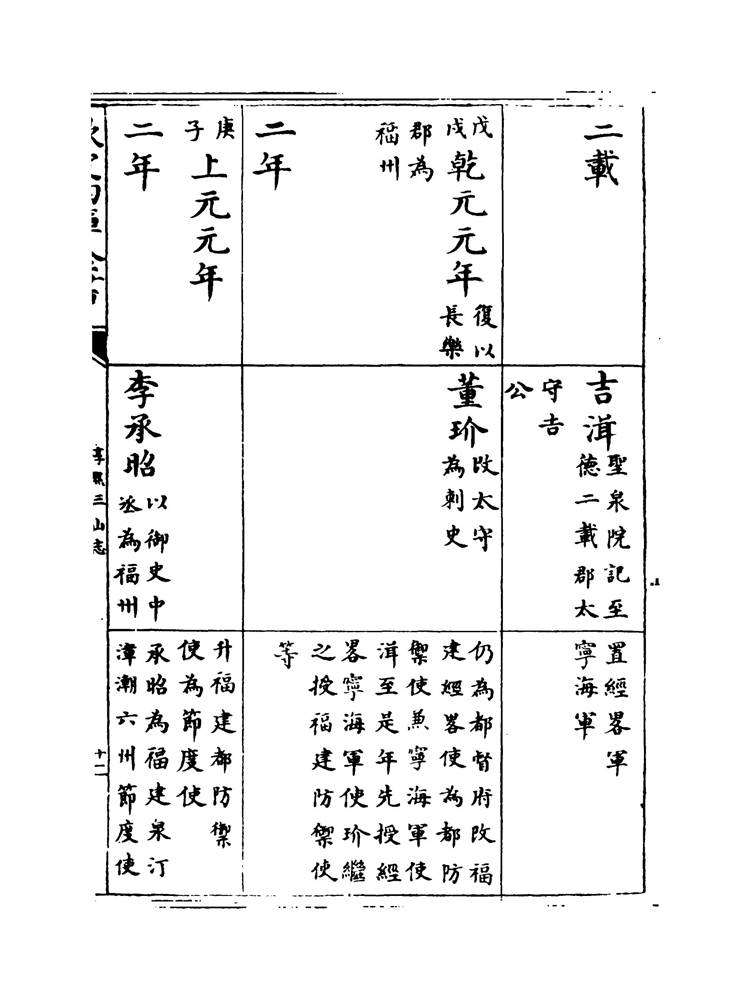 二載
吉湒
聖泉院記至
德二載郡太
守吉
公
置經畧軍
寧海軍
戊
戌
乾元元年
復以
長樂
郡為
福州
董玠
改太守
為刺史
仍為都督府改福
建經畧使為都防
禦使兼寧海軍使
湒至是年先授經
畧寧海軍使玠繼
之授福建防禦使
等
二年
庚
子
上元元年
升福建都防禦
使為節度使
二年
李承昭
以御史中
丞為福州
承昭為福建泉汀
漳潮六州節度使
淳熙三山志
十二